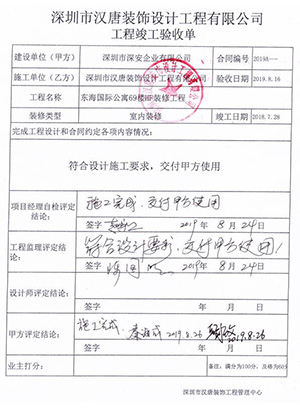 深圳市汉唐装饰设计工程有限公司
工程竣工验收单
建设单位（甲方） 深圳市深安企业有限公司 合同编号 2019A—
施工单位（乙方） 深圳市汉唐装饰设计工程有限公司 验收日期 2019.8.16
工程名称 东海国际公寓69楼HF装修工程
装修类型 室内装修 竣工日期 2018.7.28
完成工程设计和合同约定各项内容情况：
符合设计施工要求，交付甲方使用
项目经理自检评定结论： 施工完成，交付甲方使用
签字 2019年8月24日
工程监理评定结论： 符合设计要求，交付甲方使用！
签字 2019年8月24日
设计师评定结论：
签字 年 月 日
甲方评定结论： 施工完成 2019.8.26 2019.8.26
签字 年 月 日
业主打分： 备注：满分为100分，及格为60分
深圳市汉唐装饰工程管理中心